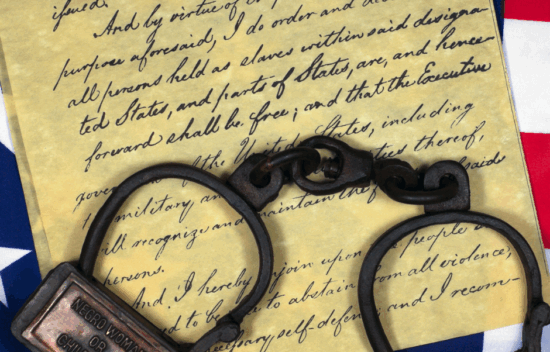 issued.
And by virtue of
purpose aforesaid, I do order and
all persons held as slaves within said designa-
ted States, and parts of States, are, and hence-
forward shall be free; and that the Executive
of the United States, including
military and ties thereof,
will recognize and maintain the
persons.
And I hereby enjoin upon the people
to abstain from all violence,
self-defence; and I recom-
NEGRO WOMAN
OR